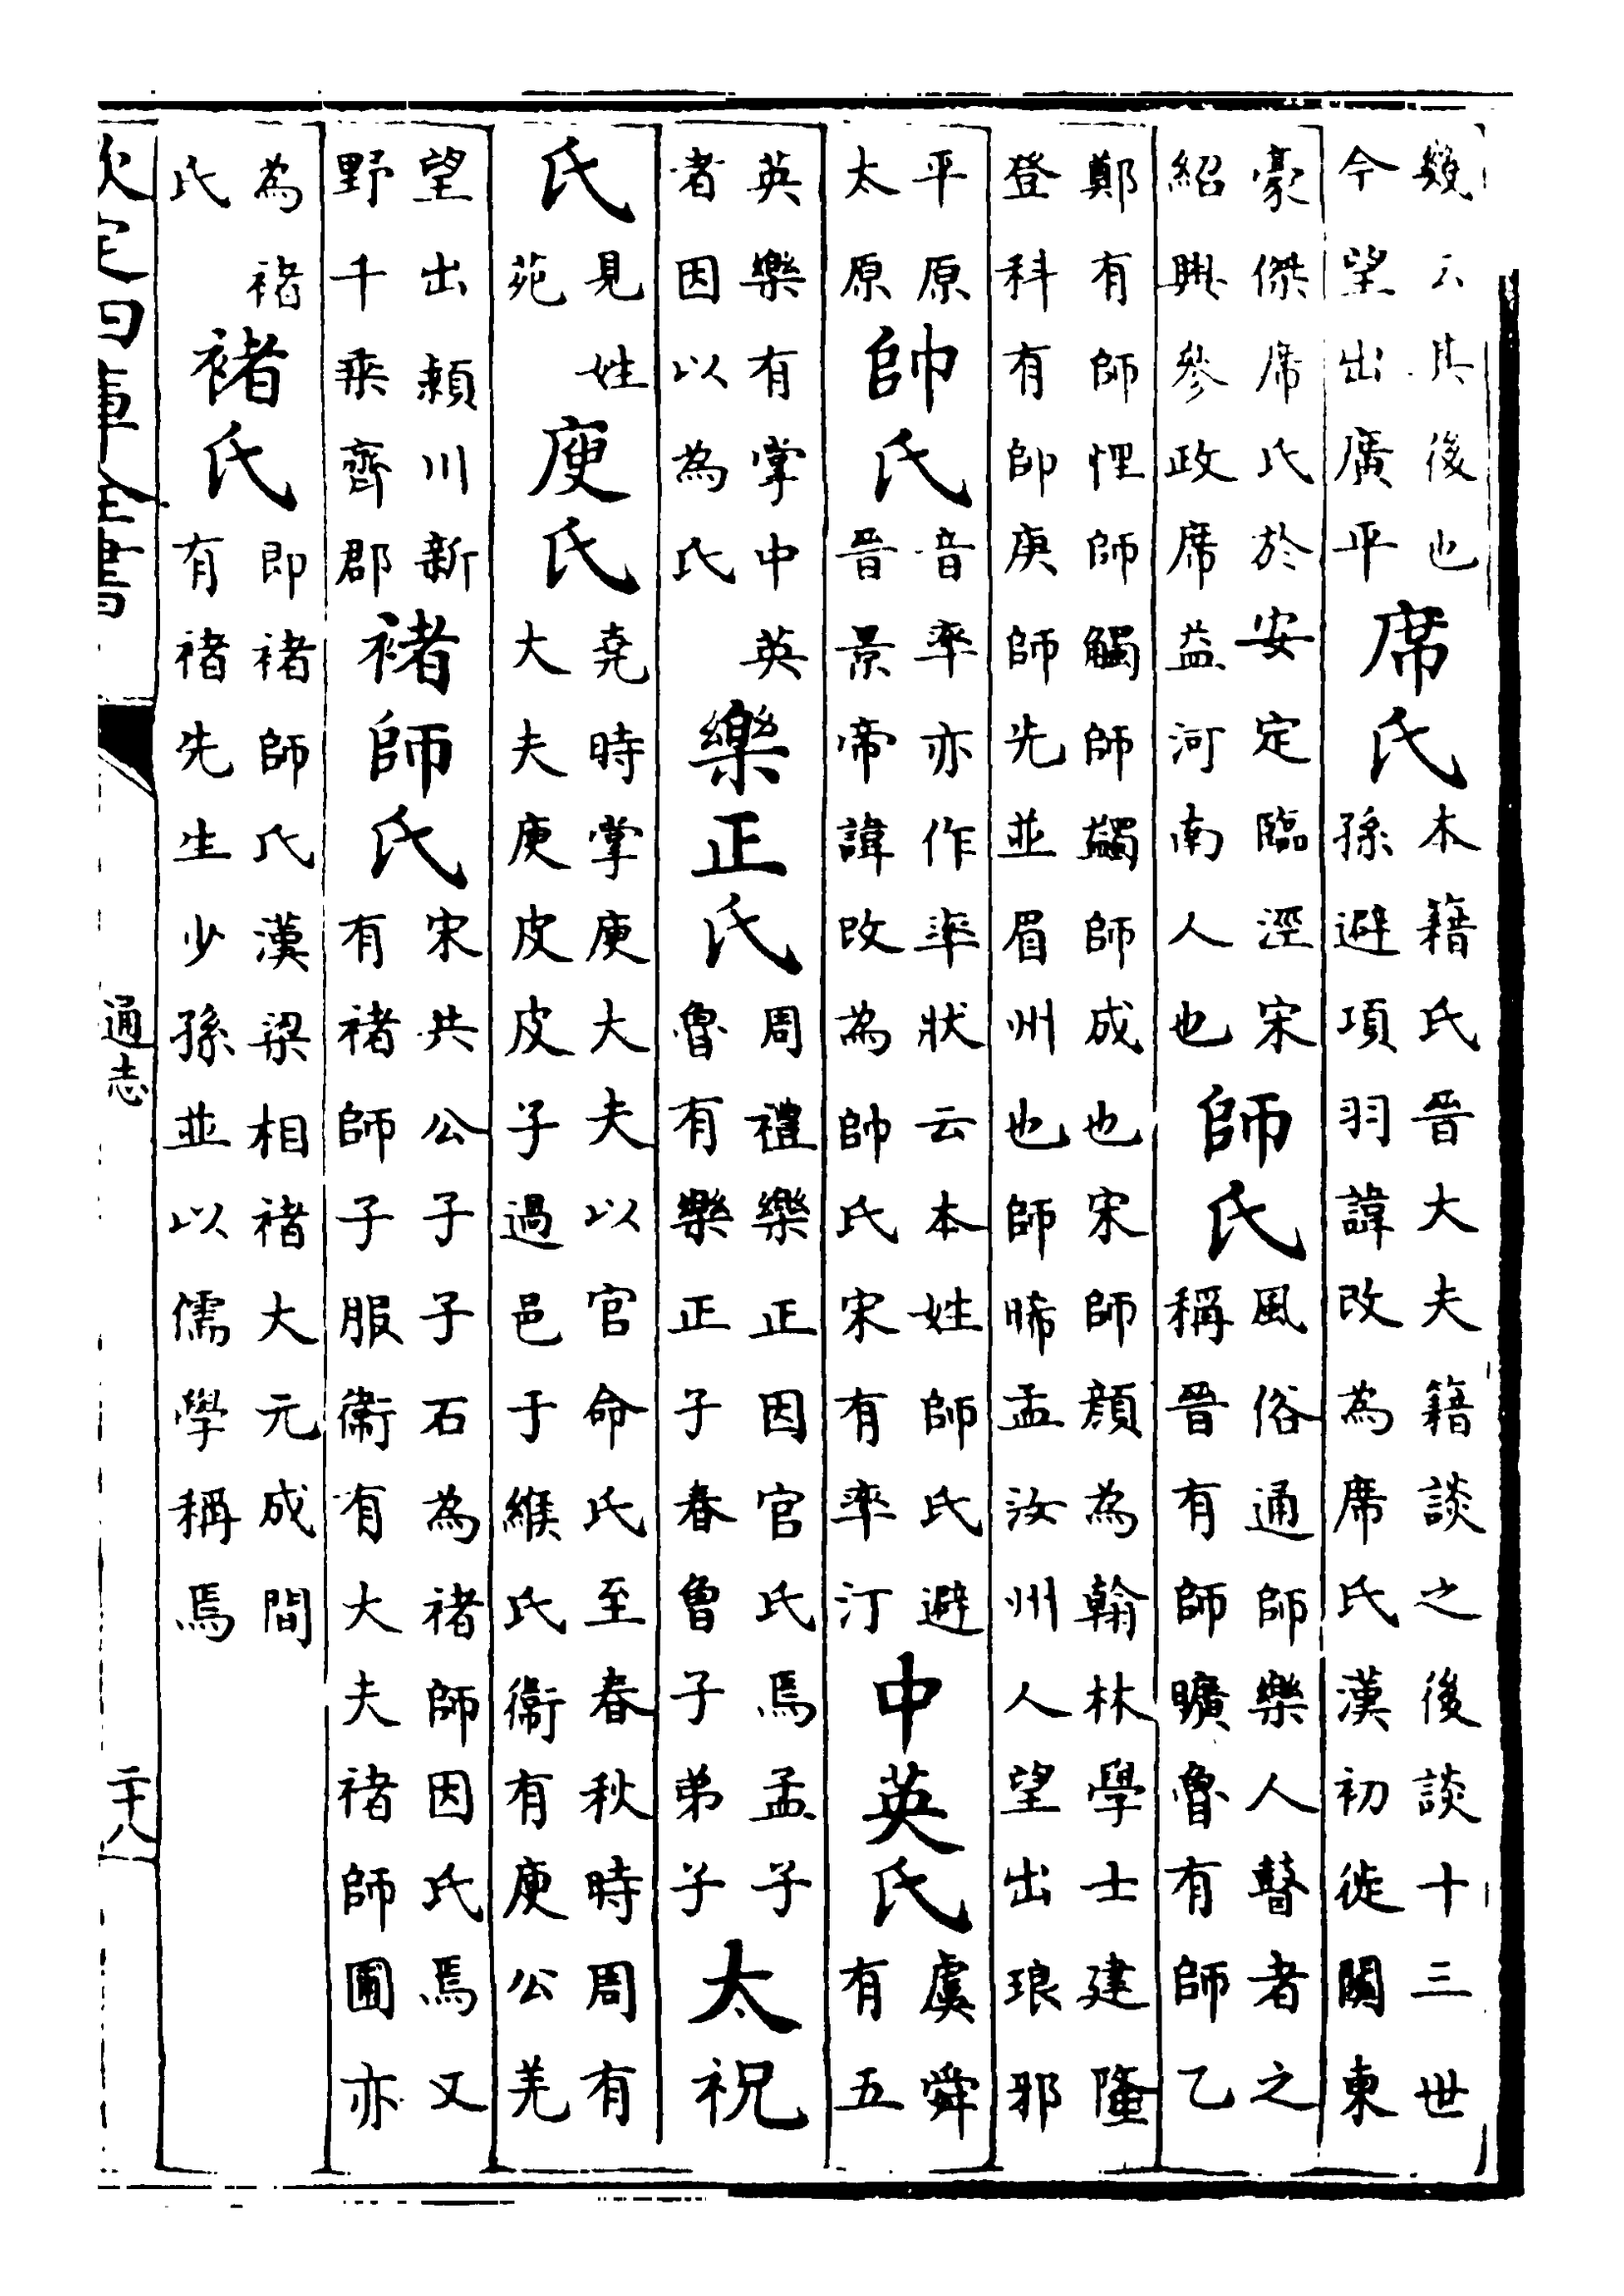 幾云其後也今望出廣平席氏本籍氏晉大夫籍談之後談十三世孫避項羽諱改為席氏漢初徙關東
豪傑席氏於安定臨涇宋紹興參政席益河南人也師氏風俗通師樂人瞽者之稱晉有師曠魯有師乙
鄭有師悝師觸師蠲師成也宋師顏為翰林學士建隆登科有師庚師先並眉州也師晞孟汝州人望出琅邪
平原太原帥氏音率亦作率狀云本姓師氏避晉景帝諱改為帥氏宋有率汀中英氏虞舜有五
英樂有掌中英者因以為氏樂正氏周禮樂正因官氏焉孟子魯有樂正子春魯子弟子太祝
氏見姓苑庾氏堯時掌庾大夫以官命氏至春秋時周有大夫庾皮皮子過邑于緱氏衞有庾公差
望出潁川新野千乘齊郡褚師氏宋共公子子石為褚師因氏焉又有褚師子服衞有大夫褚師圃亦
為褚氏褚氏即褚師氏漢梁相褚大元成間有褚先生少孫並以儒學稱焉
欽定四庫全書
通志
二十八